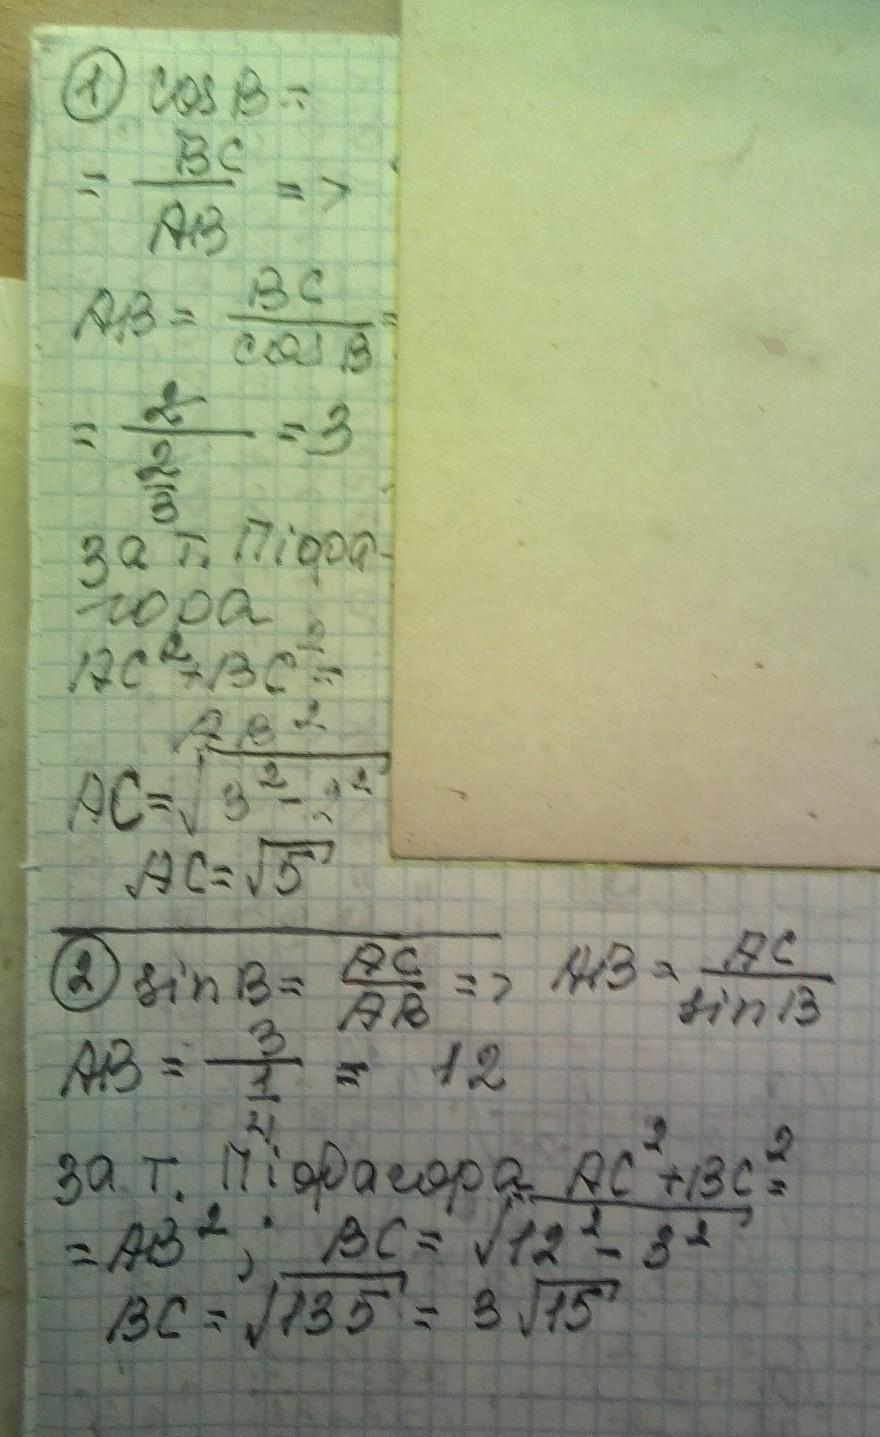 ① cos B =
= BC/AB =>
AB = BC/cos B =
= 2/(2/3) = 3
За т. Піфа-
гора
AC² + BC² =
AB²
AC = √(3² - 2²)
AC = √5
② sin B = AC/AB => AB = AC/sin B
AB = 3/(1/4) = 12
За т. Піфагора AC² + BC² =
= AB²; BC = √(12² - 3²)
BC = √135 = 3√15